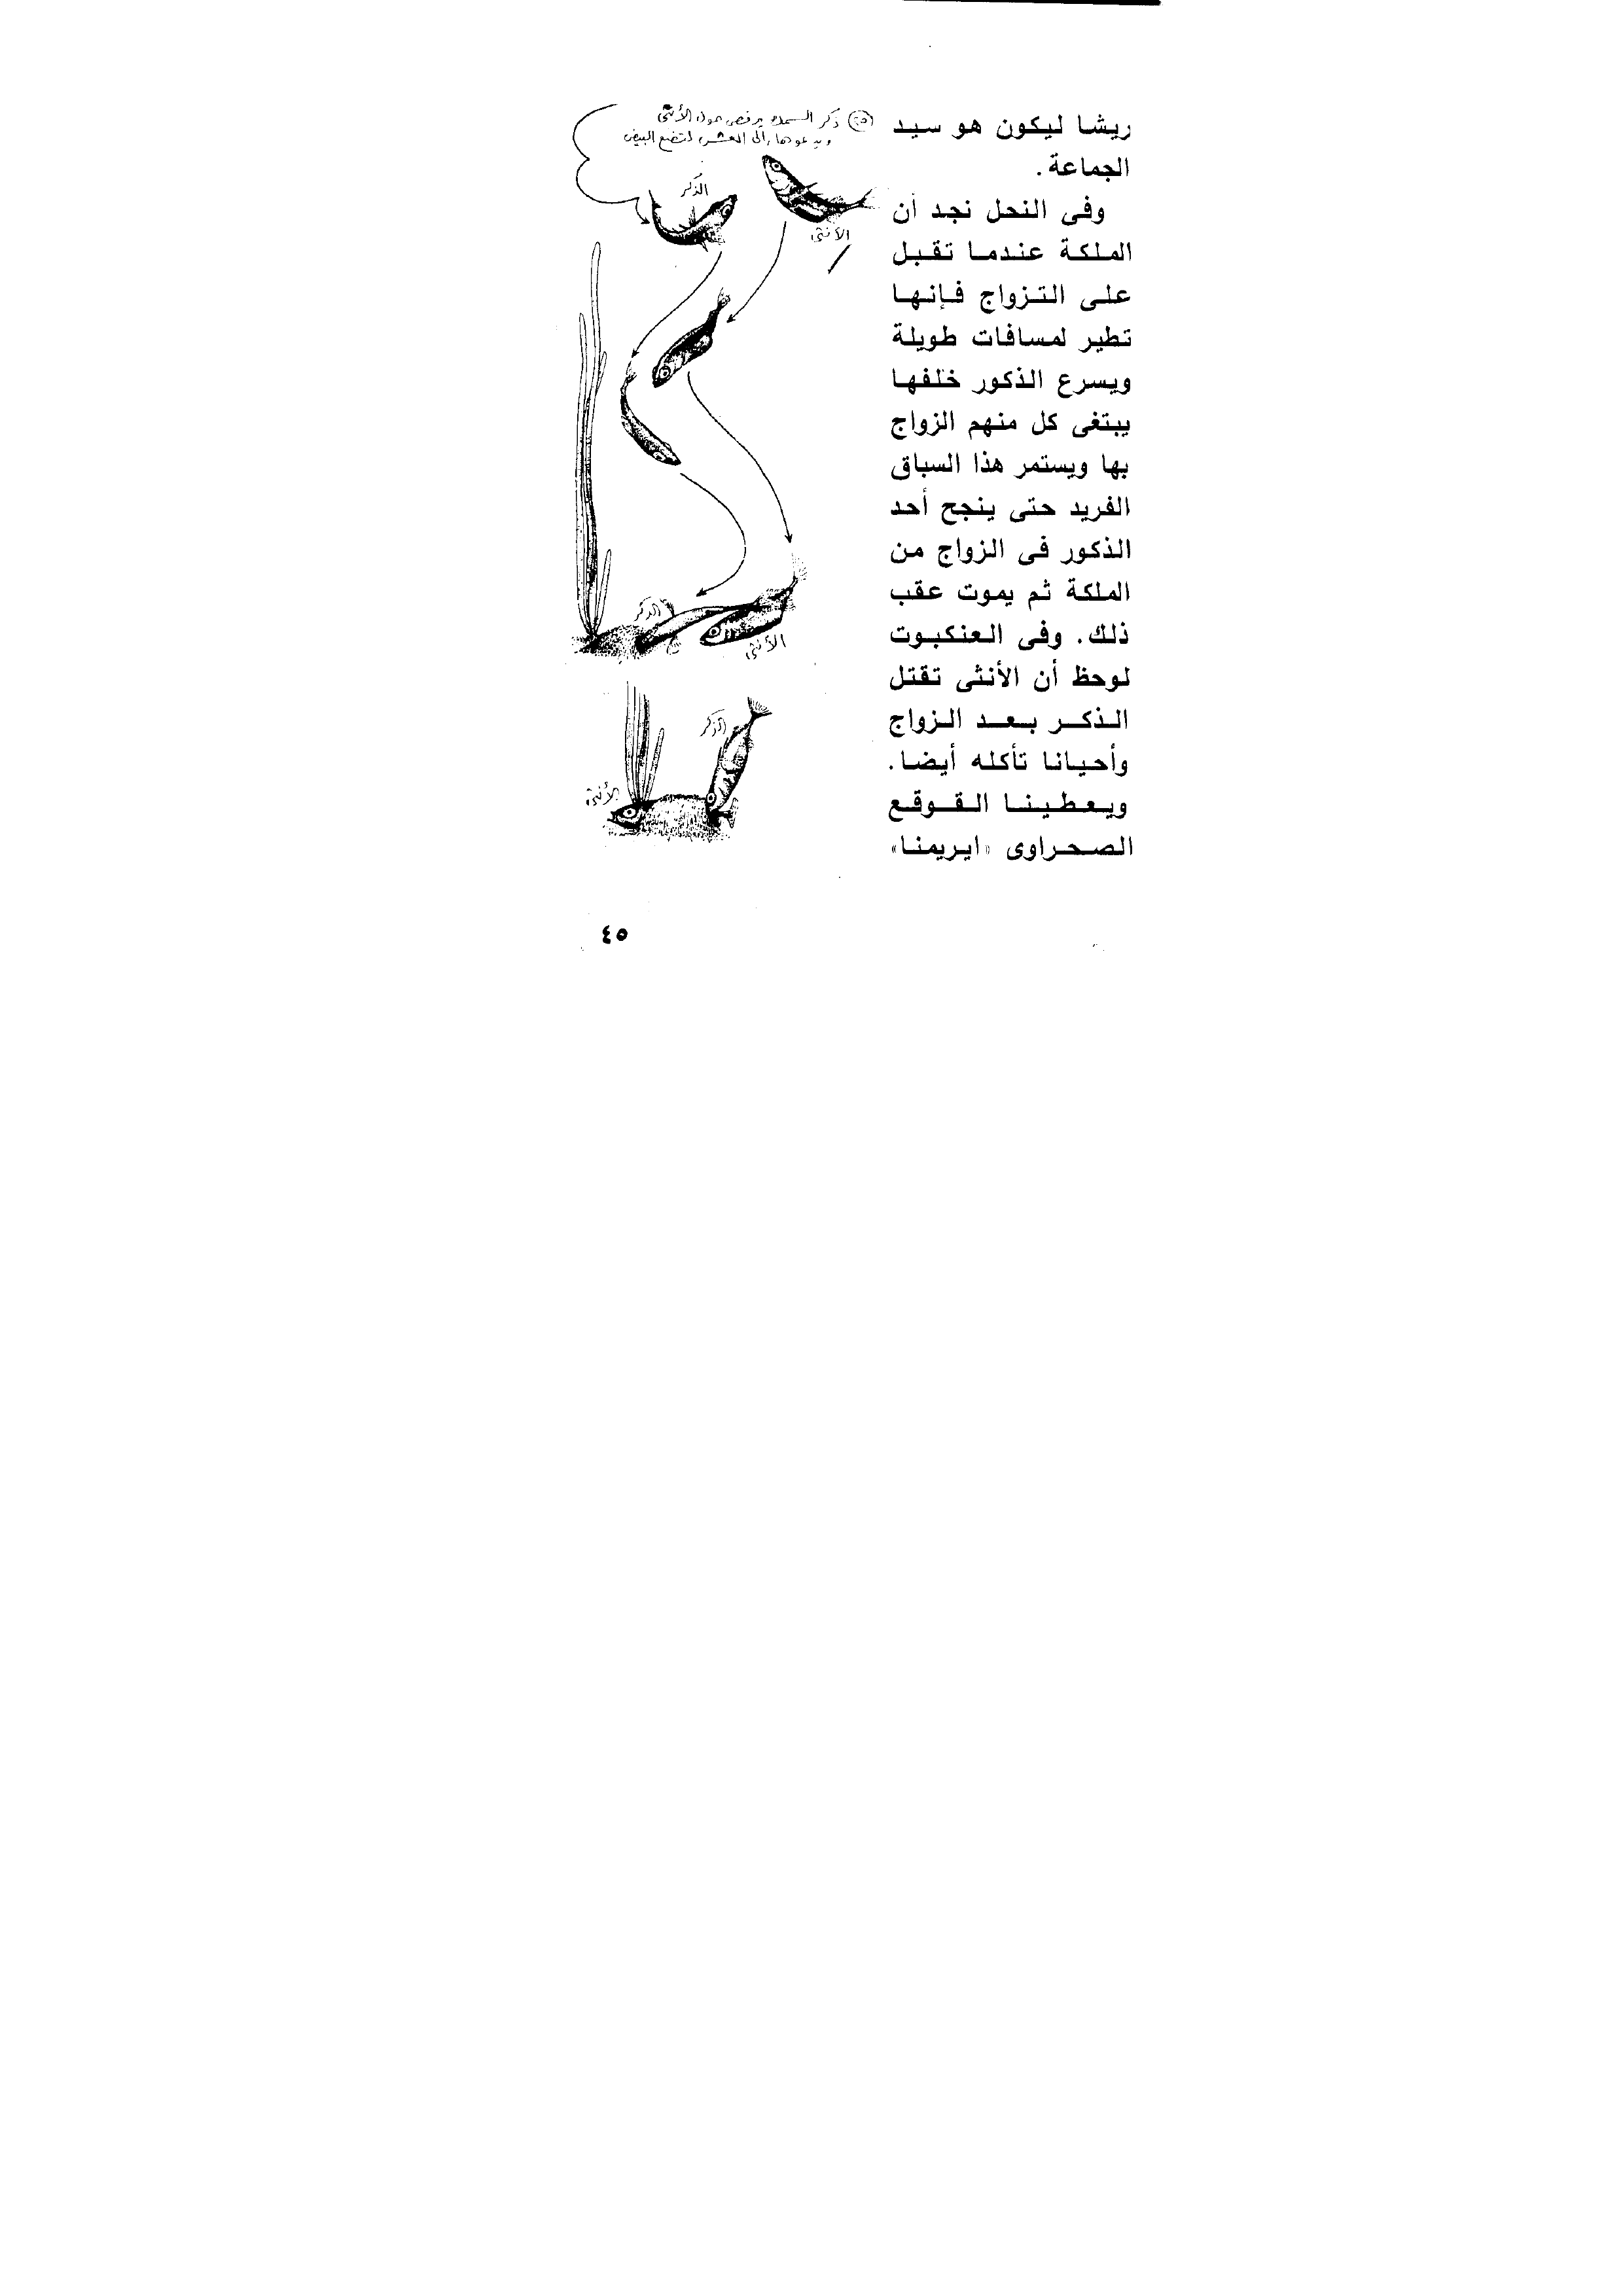 ريشا ليكون هو سيد
الجماعة.
وفى النحل نجد أن
الملكة عندما تقبل
على التزواج فإنها
تطير لمسافات طويلة
ويسرع الذكور خلفها
يبتغى كل منهم الزواج
بها ويستمر هذا السباق
الفريد حتى ينجح أحد
الذكور فى الزواج من
الملكة ثم يموت عقب
ذلك. وفى العنكبوت
لوحظ أن الأنثى تقتل
الذكر بعد الزواج
وأحيانا تأكله أيضا.
ويعطينا القوقع
الصحراوى «ايريمنا»
ذكر السمك يرقص حول الأنثى
ويدعوها إلى العش لتضع البيض
الذكر
الأنثى
الذكر
الأنثى
الذكر
الأنثى
٤٥